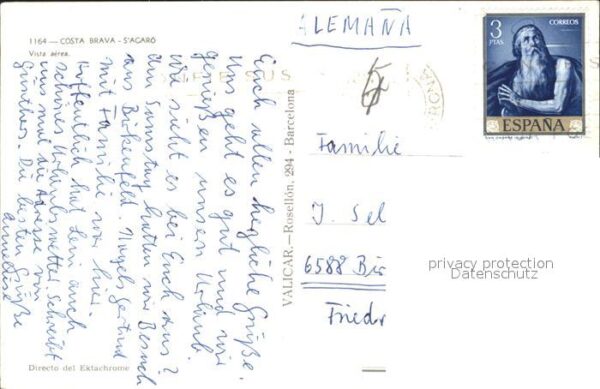 1164 — COSTA BRAVA - S'AGARÓ
Vista aérea
ALEMAÑA
3
PTAS
CORREOS
ESPAÑA
Euch allen herzliche Grüße.
Uns geht es gut und wir
genießen unsern Urlaub.
Wie sieht es bei Euch aus?
Am Samstag hatten wir Besuch
aus Birkenfeld. Gertrud
mit Familie war hier.
Hoffentlich hat Ihr auch
schönes Urlaubswetter. Schreibt
uns mal die Adresse von
Günther. Die besten Grüße
VALICAR.—Rosellón, 294 - Barcelona
Directo del Ektachrome
Familie
J. Sel
6588 Bir
Frieder
privacy protection
Datenschutz